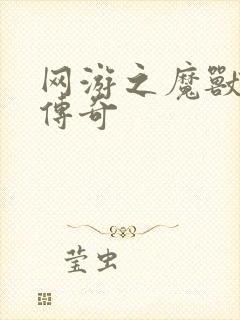 网游之魔獸
傳奇
莹虫